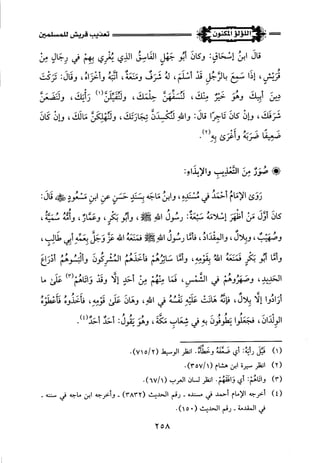 اللؤلؤ المكنون
تعذيب قريش للمسلمين
قَالَ ابنُ إِسْحَاقَ: وكَانَ أَبُو جَهْلٍ الفَاسِقُ الذِي يُغْرِي بِهِمْ فِي رِجَالٍ مِنْ
قُرَيْشٍ، إِذَا سَمِعَ بِالرَّجُلِ قَدْ أَسْلَمَ، لَهُ شَرَفٌ ومَنَعَةٌ، أَنَّبَهُ وأَخْزَاهُ، وقَالَ: تَرَكْتَ
دِينَ أَبِيكَ وهُوَ خَيْرٌ مِنْكَ، لَنُسَفِّهَنَّ حِلْمَكَ، ولَنُفَيِّلَنَّ(١) رَأْيَكَ، ولَنَضَعَنَّ
شَرَفَكَ، وإِنْ كَانَ تَاجِرًا قَالَ: واللهِ لَنُكْسِدَنَّ تِجَارَتَكَ، ولَنُهْلِكَنَّ مَالَكَ، وإِنْ كَانَ
ضَعِيفًا ضَرَبَهُ وأَغْرَى بِهِ(٢).
صُوَرٌ مِنَ التَّعْذِيبِ والإِيذَاءِ:
رَوَى الإِمَامُ أَحْمَدُ فِي مُسْنَدِهِ، وابنُ مَاجَه بِسَنَدٍ حَسَنٍ عَنِ ابنِ مَسْعُودٍ ﷺ قَالَ:
كَانَ أَوَّلَ مَنْ أَظْهَرَ إِسْلَامَهُ سَبْعَةٌ: رسُولُ اللهِ ﷺ، وأَبُو بَكْرٍ، وعَمَّارٌ، وأُمُّهُ سُمَيَّةُ،
وصُهَيْبٌ، وبِلَالٌ، والمِقْدَادُ، فَأَمَّا رسُولُ اللهِ ﷺ فَمَنَعَهُ اللهُ عَزَّ وَجَلَّ بِعَمِّهِ أَبِي طَالِبٍ،
وأَمَّا أَبُو بَكْرٍ فَمَنَعَهُ اللهُ بِقَوْمِهِ، وأَمَّا سَائِرُهُمْ فَأَخَذَهُمُ المُشْرِكُونَ وأَلْبَسُوهُمْ أَدْرَاعَ
الحَدِيدِ، وصَهَرُوهُمْ فِي الشَّمْسِ، فَمَا مِنْهُمْ مِنْ أَحَدٍ إِلَّا وقَدْ وَاتَاهُمْ(٣) عَلَى مَا
أَرَادُوا إِلَّا بِلَالٌ، فَإِنَّهُ هَانَتْ عَلَيْهِ نَفْسُهُ فِي اللهِ، وهَانَ عَلَى قَوْمِهِ، فَأَخَذُوهُ فَأَعْطَوْهُ
الوِلْدَانَ، فَجَعَلُوا يَطُوفُونَ بِهِ فِي شِعَابِ مَكَّةَ، وهُوَ يَقُولُ: أَحَدٌ أَحَدٌ(٤).
(١) فَيَّلَ رَأْيَهُ: أي ضَعَّفَهُ وخَطَّأَهُ. انظر الوسيط (٧١٥/٢).
(٢) انظر سيرة ابن هشام (٣٥٧/١).
(٣) وَاتَاهُمْ: أي وَافَقَهُمْ. انظر لسان العرب (٦٧/١).
(٤) أخرجه الإمام أحمد في مسنده ـ رقم الحديث (٣٨٣٢) ـ وأخرجه ابن ماجه في سننه ـ
في المقدمة ـ رقم الحديث (١٥٠).
٢٥٨